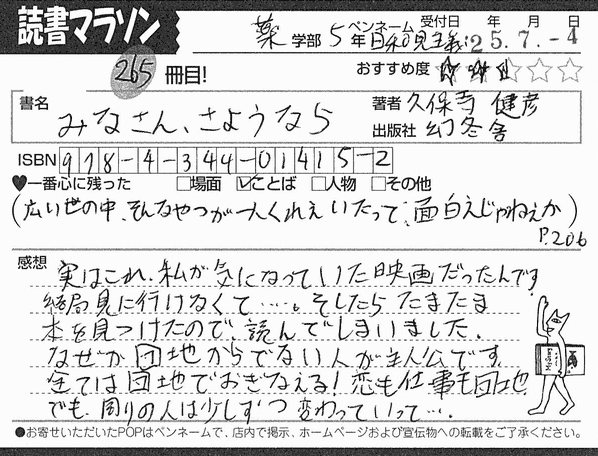 読書マラソン
265冊目!
薬 学部 5年 ペンネーム 日和見主義 受付日 年 月 日 25.7.-4
おすすめ度 ☆☆☆☆☆
書名 みなさん、さようなら
著者 久保寺 健彦
出版社 幻冬舎
ISBN 978-4-344-01415-2
♥一番心に残った □場面 ☑ことば □人物 □その他
(広い世の中、そんなやつが一人くれえいたって、面白えじゃねえか)
P.206
感想 実はこれ、私が気になっていた映画だったんです
結局見に行けなくて……。そしたら たまたま
本を見つけたので、読んでしまいました。
なぜか団地からでない人が主人公です。
全ては団地でおぎなえる!恋も仕事も団地
でも、周りの人は少しずつ変わっていって…。
●お寄せいただいたPOPはペンネームで、店内で掲示、ホームページおよび宣伝物への転載をご了承ください。